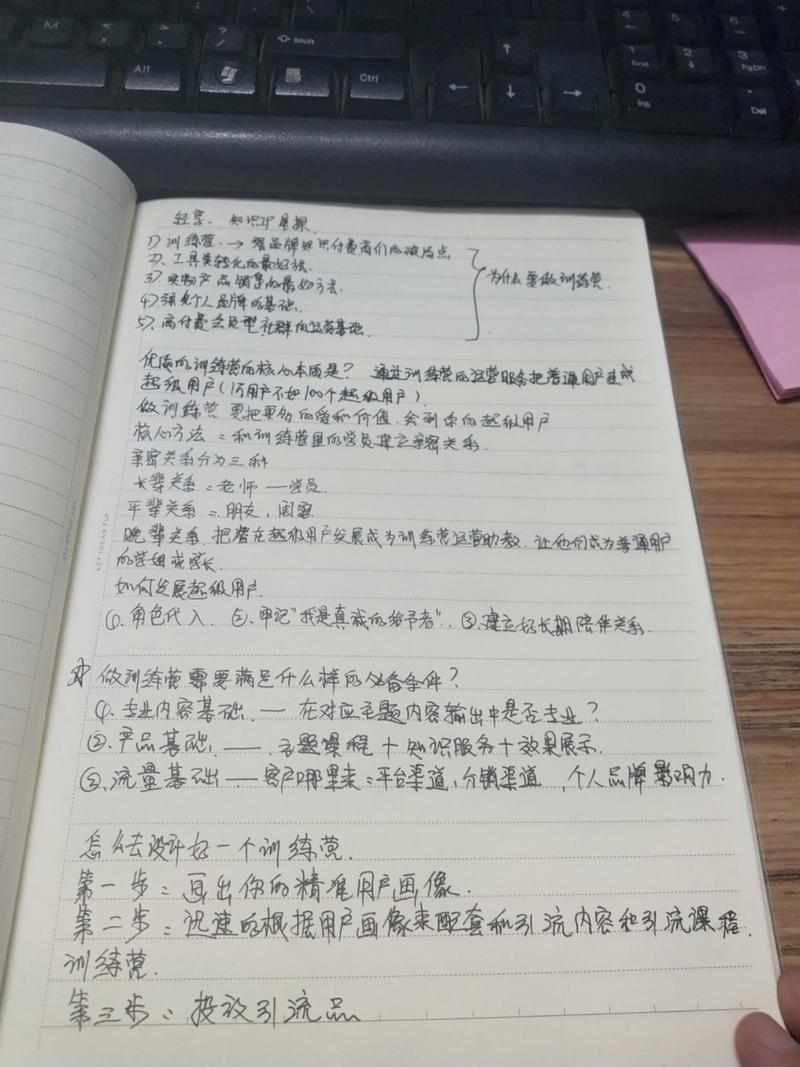 M < > ? / Shift
Alt Ctrl
4 5 6
1 End 2 3 PgDn
0 Ins . Del
轻享. 知识IP星探.
1) 训练营. → 是品牌知识付费商们的破局点
2). 工具类转化的最好方法.
3) 实物产品销售的最好方法.
4) 强化个人品牌的基础.
5). 高付费会员型社群的运营基础.
为什么要做训练营.
优质的训练营的核心本质是? 通过训练营的运营服务把普通用户变成
超级用户(1万用户不如100个超级用户)
做训练营 要把更多的爱和价值. 给到你的超级用户
核心方法: 和训练营里的学员建立亲密关系.
亲密关系分为三种
长辈关系: 老师——学员.
平辈关系: 朋友, 闺蜜
晚辈关系. 把潜在超级用户发展成为训练营运营助教. 让他们成为普通用户
的学姐或学长.
如何发展超级用户.
①. 角色代入. ②. 牢记"我是真诚的给予者". ③. 建立好长期陪伴关系.
☆ 做训练营需要满足什么样的必备条件?
①. 专业内容基础. — 在对应主题内容输出中是否专业?
②. 产品基础. ——. 主题课程+知识服务+效果展示.
③. 流量基础 —— 客户哪里来: 平台渠道, 分销渠道, 个人品牌影响力.
怎么去设计好一个训练营.
第一步: 画出你的精准用户画像.
第二步: 迅速的根据用户画像来配套和引流内容和引流课程.
训练营.
第三步: 投放引流品